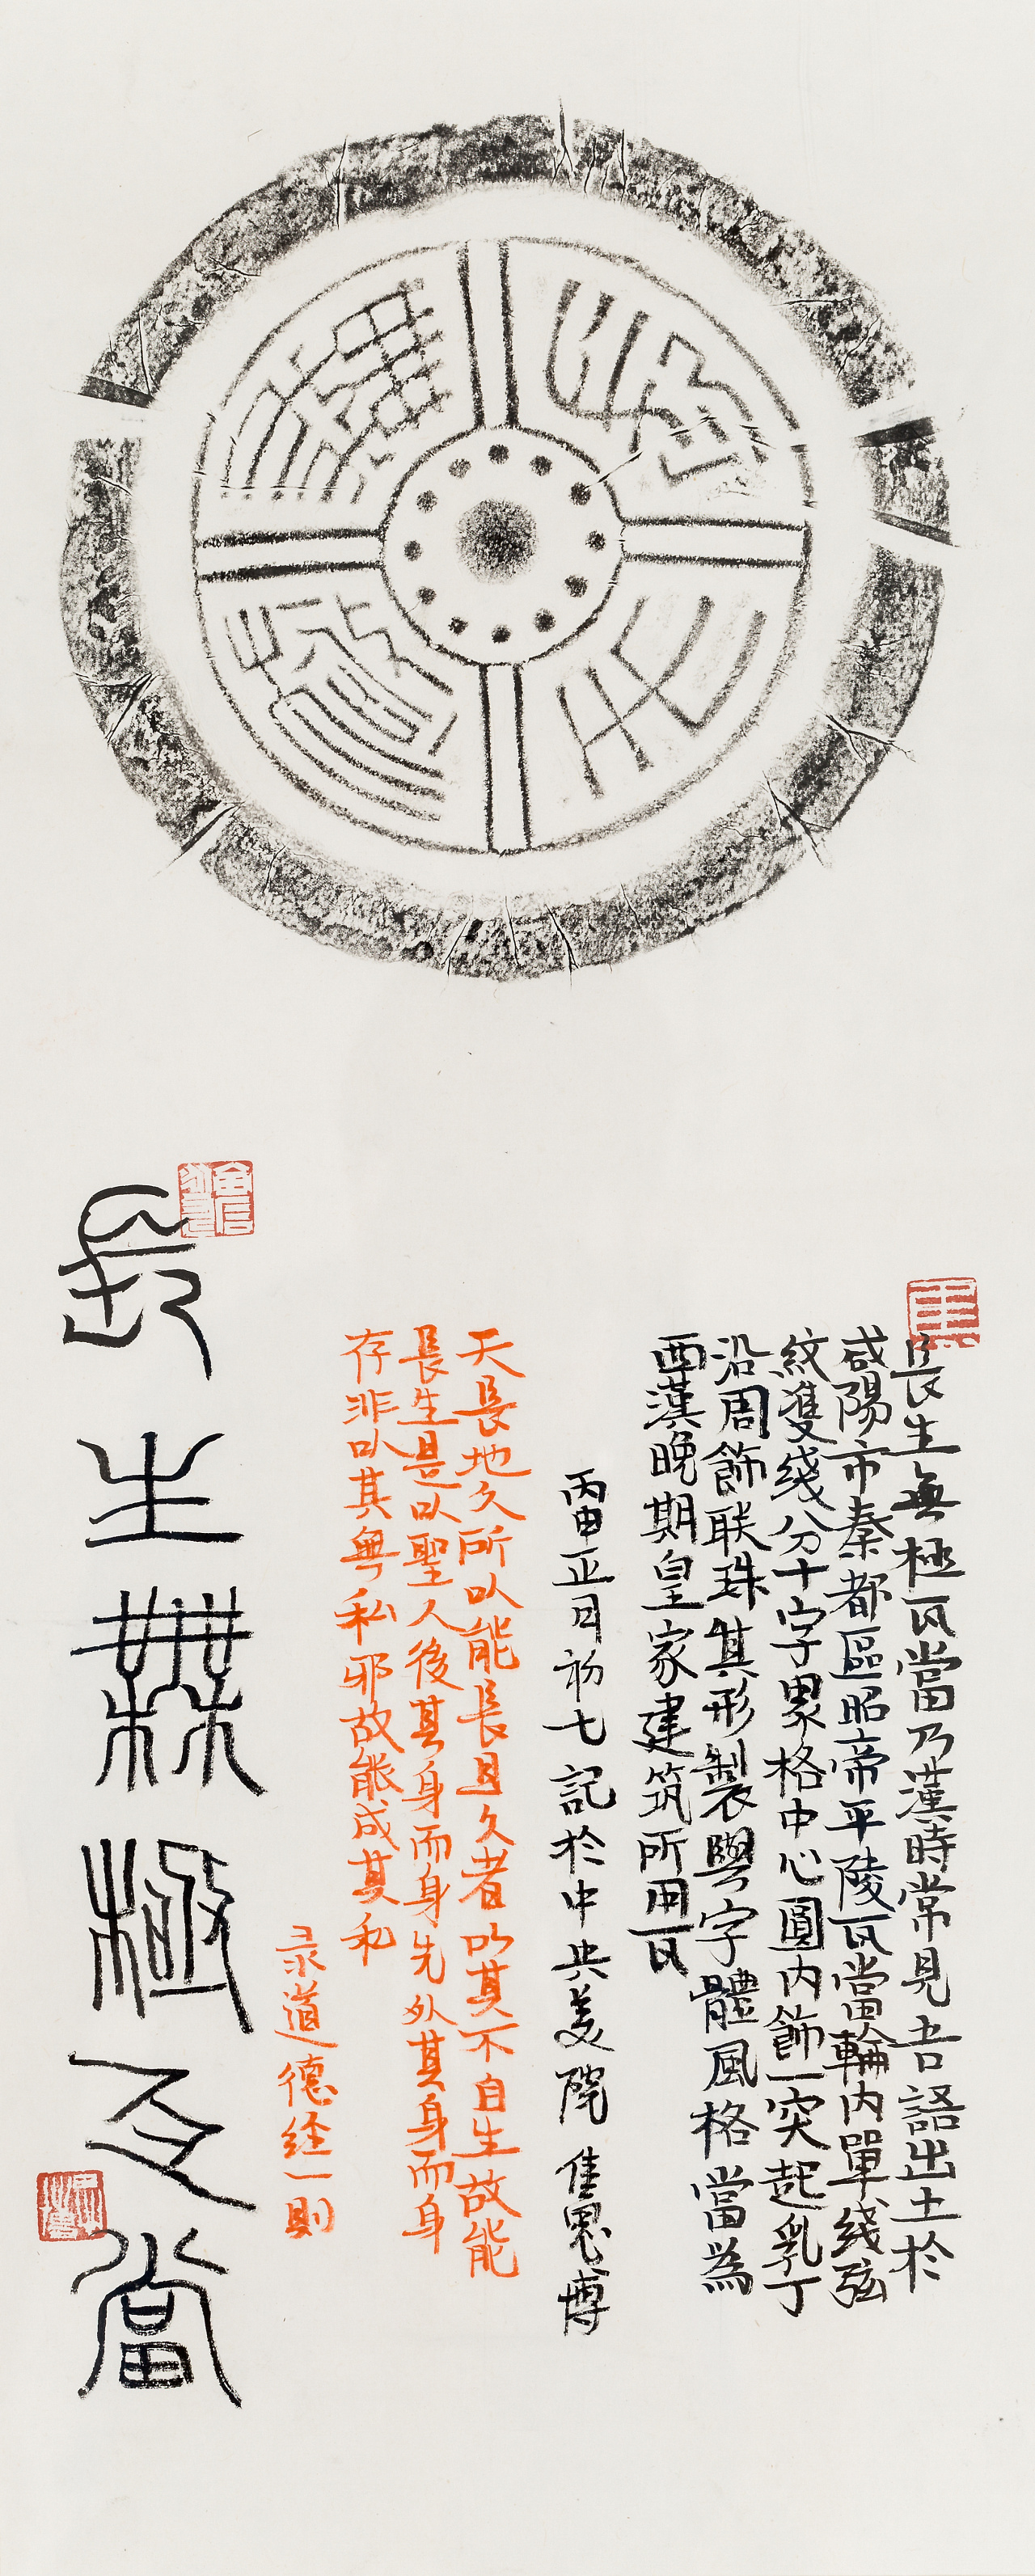 長生無極
長生無極瓦當乃漢時常見吉語出土於
咸陽市秦都區昭帝平陵瓦當輪内單綫弦
紋雙綫分十字界格中心圓内飾一突起乳丁
沿周飾联珠其形製與字體風格當為
西漢晚期皇家建筑所用瓦
丙申正月初七記於中央美院 隹思博
天長地久所以能長且久者以其不自生故能
長生是以聖人後其身而身先外其身而身
存非以其無私邪故能成其私
录道德经一則
長生無極瓦當